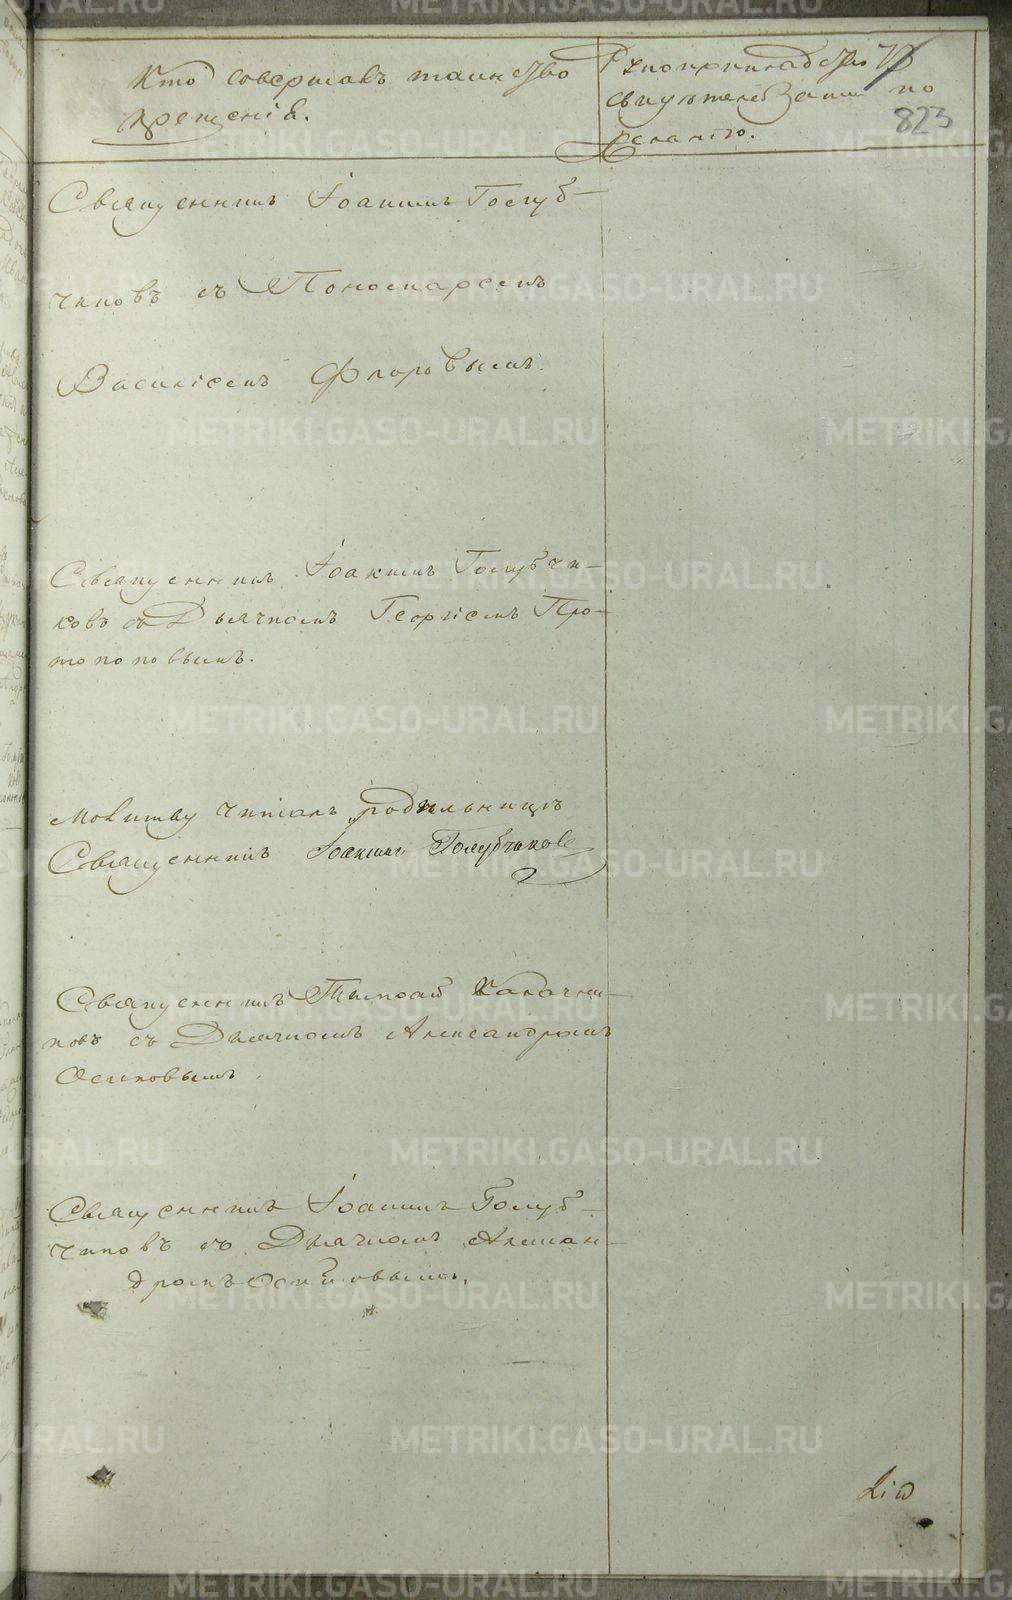 Кто совершалъ таинство
крещенія.
Рукоприкладство
свидѣтелей записи по
желанію.
823
Священникъ Іоакимъ Голуб-
чиковъ съ Пономаремъ
Василіемъ Флоровымъ.
Священникъ Іоакимъ Голубчи-
ковъ съ Дьячкомъ Георгіемъ Про-
топоповымъ.
Молитву читалъ родильницѣ
Священникъ Іоакимъ Голубчиковъ
Священникъ Тимофей Калачни-
ковъ съ Дьячкомъ Александромъ
Осиповымъ.
Священникъ Іоакимъ Голуб-
чиковъ съ Дьячкомъ Алексан-
дромъ Осиповымъ.
METRIKI.GASO-URAL.RU